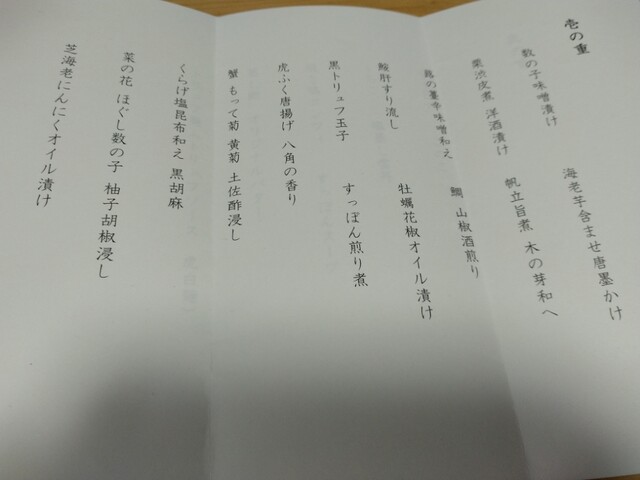 壱の重
数の子味噌漬け
海老芋含ませ唐墨かけ
栗渋皮煮 洋酒漬け
帆立旨煮 木の芽和へ
蕗の薹辛味噌和え
鯛 山椒酒煎り
鮟肝すり流し
牡蠣花椒オイル漬け
黒トリュフ玉子
すっぽん煎り煮
虎ふぐ唐揚げ 八角の香り
蟹 もって菊 黄菊 土佐酢浸し
くらげ塩昆布和え 黒胡麻
菜の花 ほぐし数の子 柚子胡椒浸し
芝海老にんにくオイル漬け